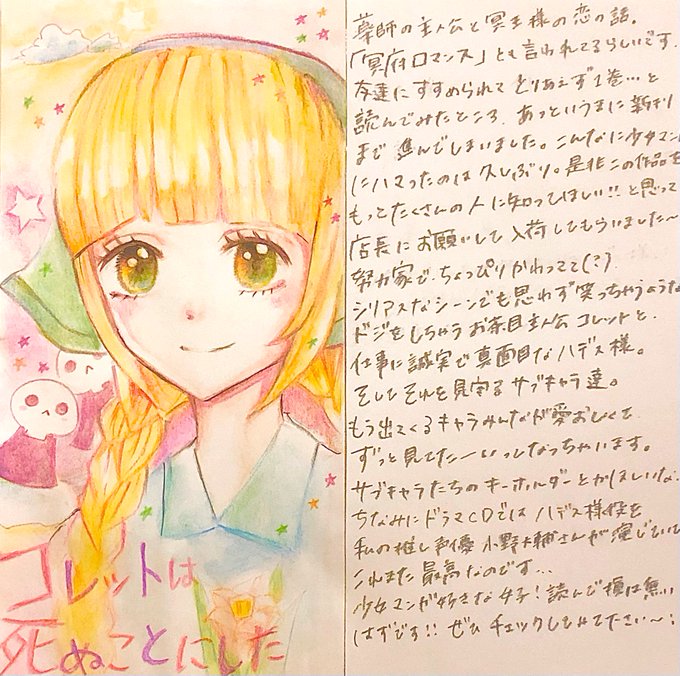 薬師の主人公と冥王様の恋の話。
「冥府ロマンス」とも言われてるらしいです。
友達にすすめられてとりあえず1巻…と
読んでみたところ、あっというまに新刊
まで進んでしまいました。こんなに少女マン
にハマったのは久しぶり。是非この作品を
もっとたくさんの人に知ってほしい!!と思って
店長にお願いして入荷してもらいました〜
努力家で、ちょっぴりかわってて(?)
シリアスなシーンでも思わず笑っちゃうような
ドジをしちゃうお茶目主人公コレットと、
仕事に誠実で真面目なハデス様。
そしてそれを見守るサブキャラ達。
もう出てくるキャラみんなが愛おしくて
ずっと見てたーいってなっちゃいます。
サブキャラたちのキーホルダーとかほしいな。
ちなみにドラマCDではハデス様役を
私の推し声優 小野大輔さんが演じていて
これまた最高なのです…
少女マンガ好きな女子!読んで損は無い
はずです!!ぜひチェックしてみてださい〜!
コレットは
死ぬことにした